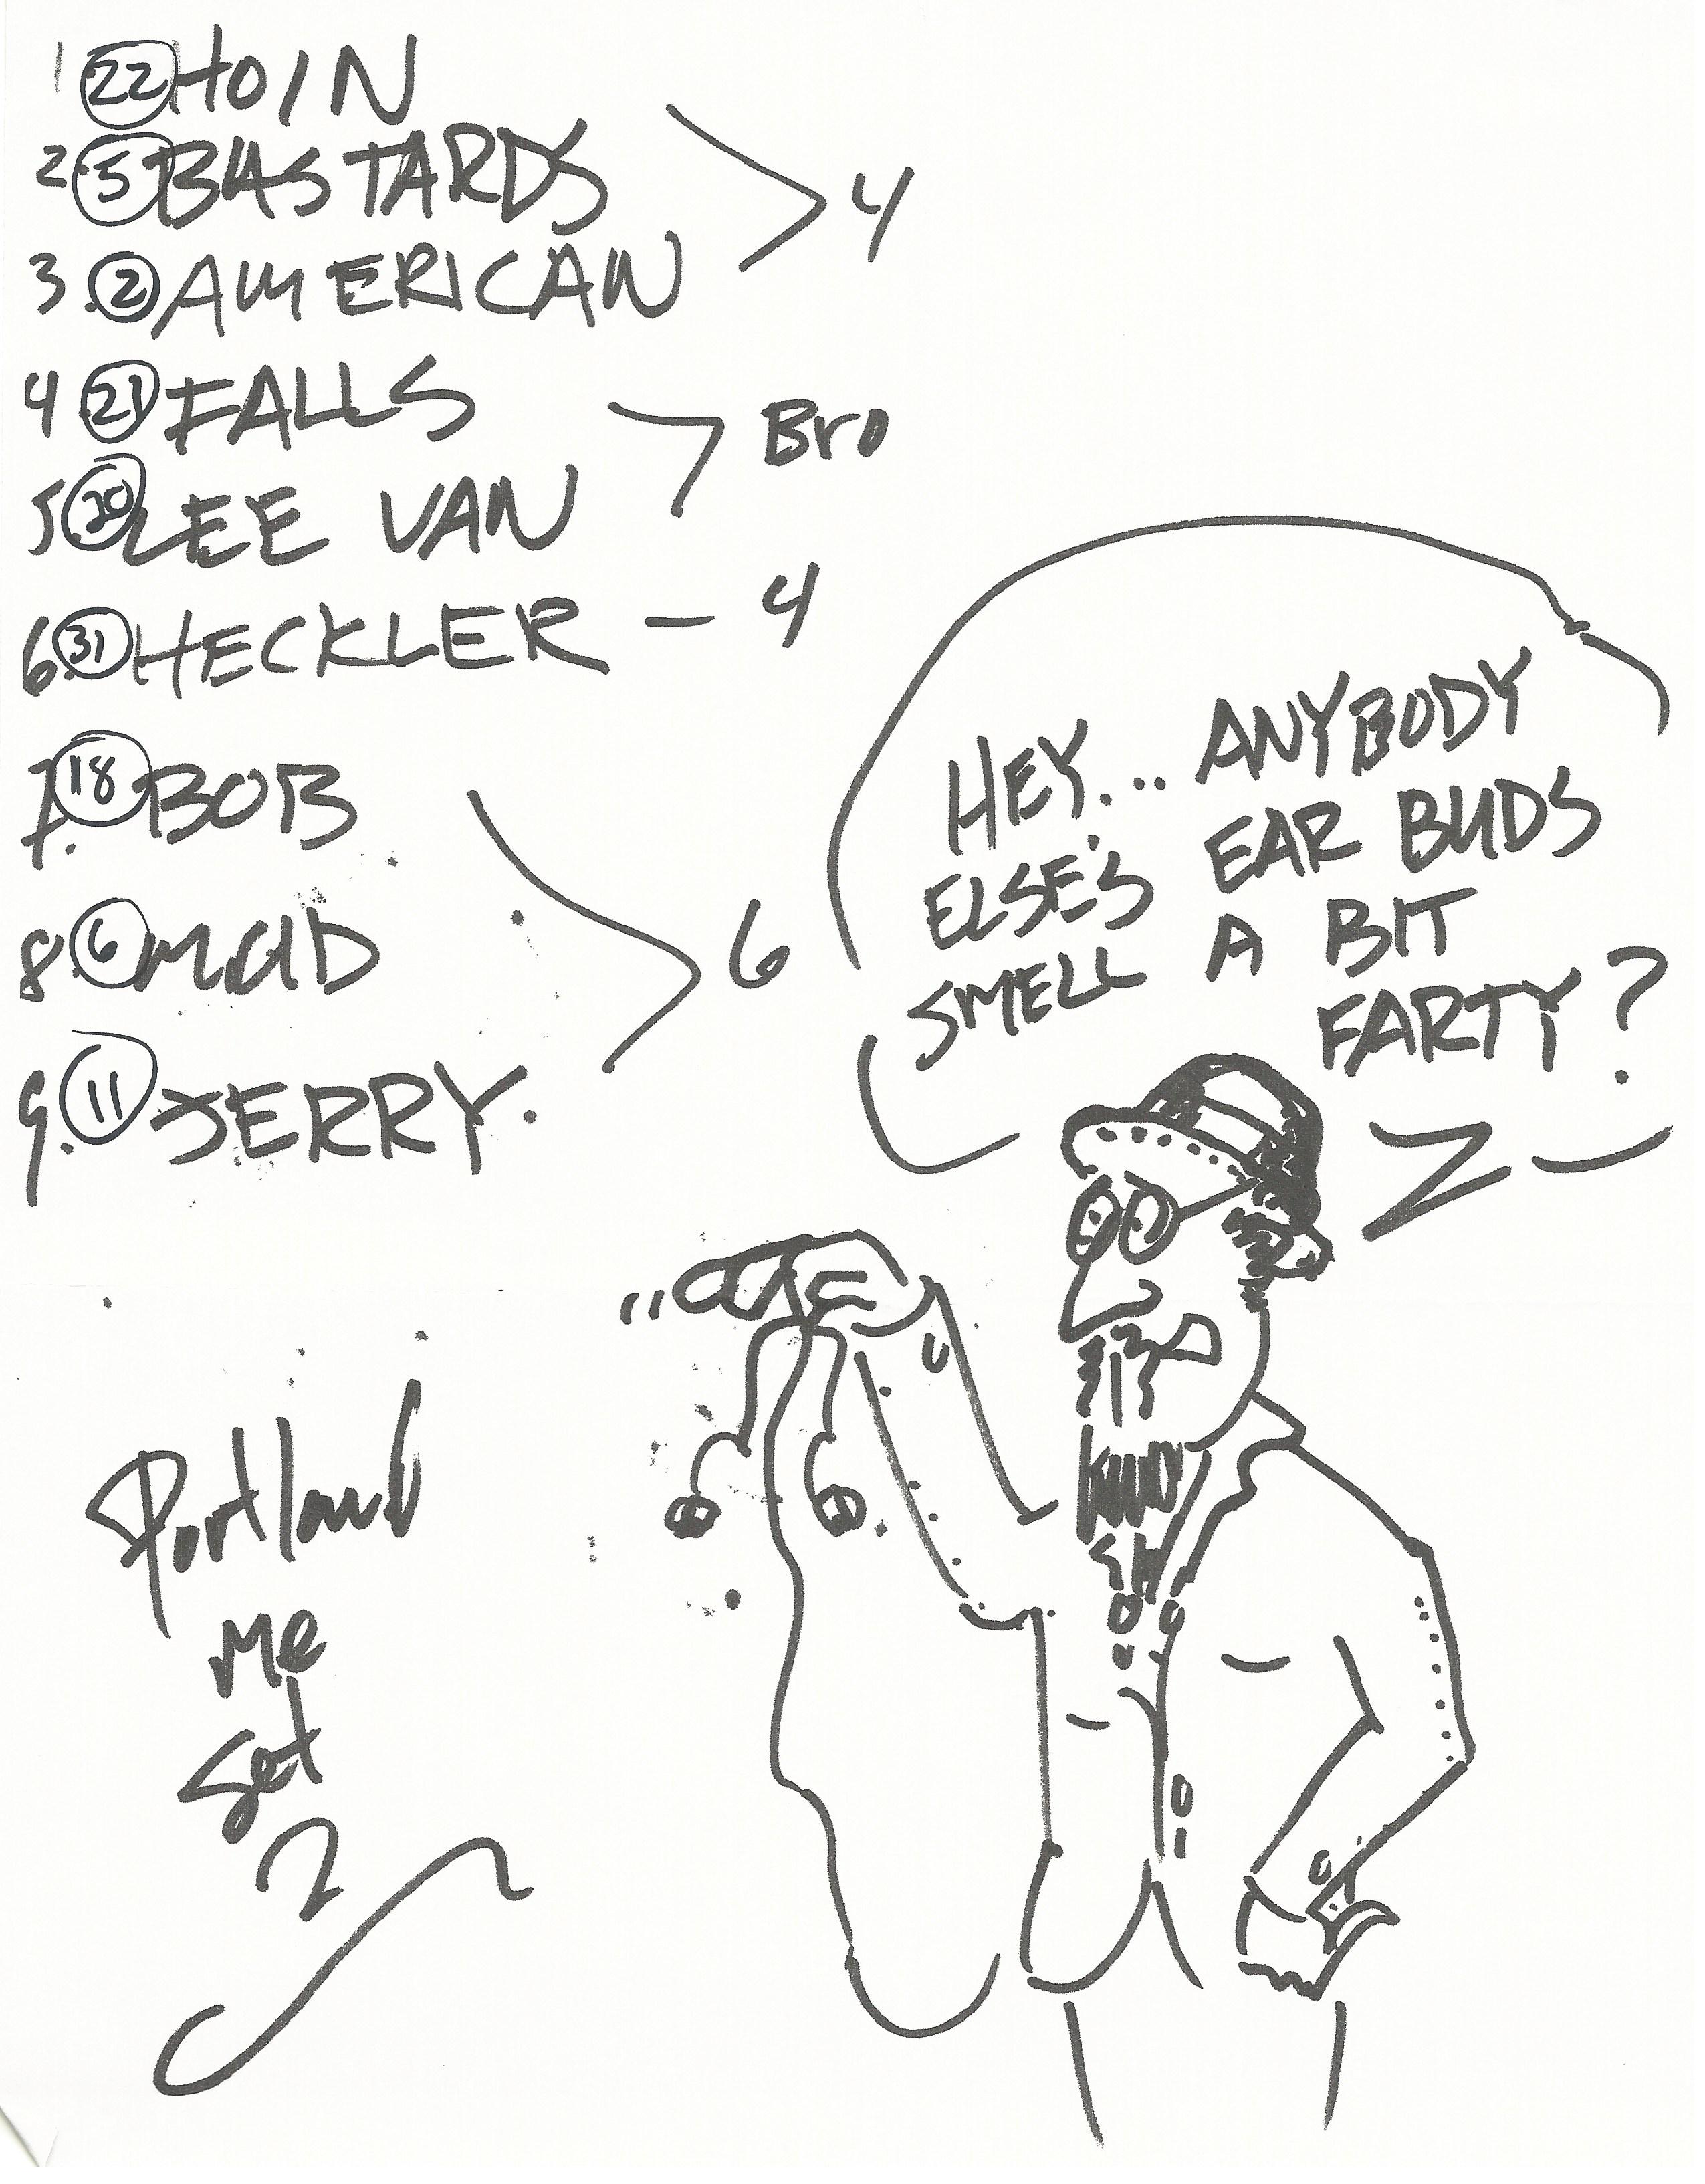 1 22 HOIN
2 5 BASTARDS
3. 2 AMERICAN
> 4
4 21 FALLS
5 20 LEE VAN
> Bro
6. 31 HECKLER — 4
7. 18 BOB
8. 6 MAD
9. 11 JERRY.
> 6
HEY... ANYBODY
ELSE'S EAR BUDS
SMELL A BIT
FARTY?
Portland
Me
Set
2